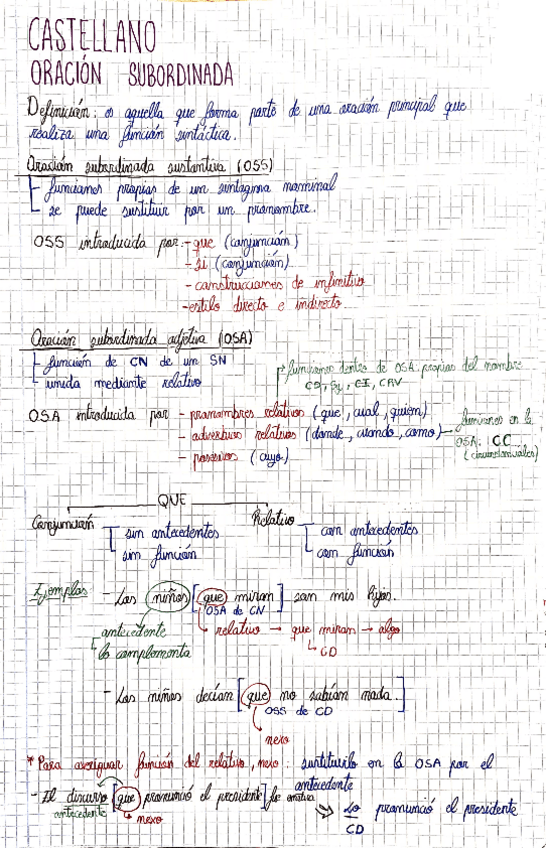 CASTELLANO
ORACIÓN SUBORDINADA
Definición: es aquella que forma parte de una oración principal que
realiza una función sintáctica.
Oración subordinada sustantiva (OSS)
funciones propias de un sintagma nominal
se puede sustituir por un pronombre.
OSS introducida por: - que (conjunción)
- si (conjunción)
- construcciones de infinitivo
- estilo directo e indirecto
Oración subordinada adjetiva (OSA)
función de CN de un SN
unida mediante relativo
funciones dentro de OSA: propias del nombre
CD, Sj, CI, CRV
OSA introducida por - pronombres relativos (que, cual, quien)
- adverbios relativos (donde, cuando, como) → funciones en la
OSA: CC
(circunstanciales)
- posesivos (cuyo)
QUE
Conjunción
sin antecedentes
sin función
Relativo
con antecedentes
con función
Ejemplos - Los niños [que miran] son mis hijos.
OSA de CN
antecedente
lo complementa
relativo → que miran → algo
CD
- Los niños decían [que no sabían nada.]
OSS de CD
nexo
* Para averiguar función del relativo, nexo: sustituirlo en la OSA por el
antecedente
- El discurso [que pronunció el presidente] fue emotivo
antecedente
nexo
⇒ Lo pronunció el presidente
CD